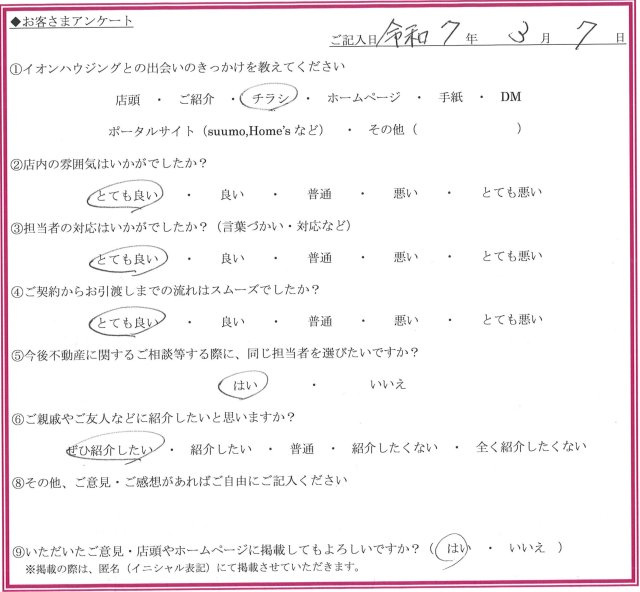 ◆お客さまアンケート
ご記入日 令和 7 年 3 月 7 日
①イオンハウジングとの出会いのきっかけを教えてください
店頭 ・ ご紹介 ・ チラシ ・ ホームページ ・ 手紙 ・ DM
ポータルサイト（suumo,Home’s など） ・ その他（ ）
②店内の雰囲気はいかがでしたか？
とても良い ・ 良い ・ 普通 ・ 悪い ・ とても悪い
③担当者の対応はいかがでしたか？（言葉づかい・対応など）
とても良い ・ 良い ・ 普通 ・ 悪い ・ とても悪い
④ご契約からお引渡しまでの流れはスムーズでしたか？
とても良い ・ 良い ・ 普通 ・ 悪い ・ とても悪い
⑤今後不動産に関するご相談等する際に、同じ担当者を選びたいですか？
はい ・ いいえ
⑥ご親戚やご友人などに紹介したいと思いますか？
ぜひ紹介したい ・ 紹介したい ・ 普通 ・ 紹介したくない ・ 全く紹介したくない
⑧その他、ご意見・ご感想があればご自由にご記入ください
⑨いただいたご意見・店頭やホームページに掲載してもよろしいですか？（ はい ・ いいえ ）
※掲載の際は、匿名（イニシャル表記）にて掲載させていただきます。